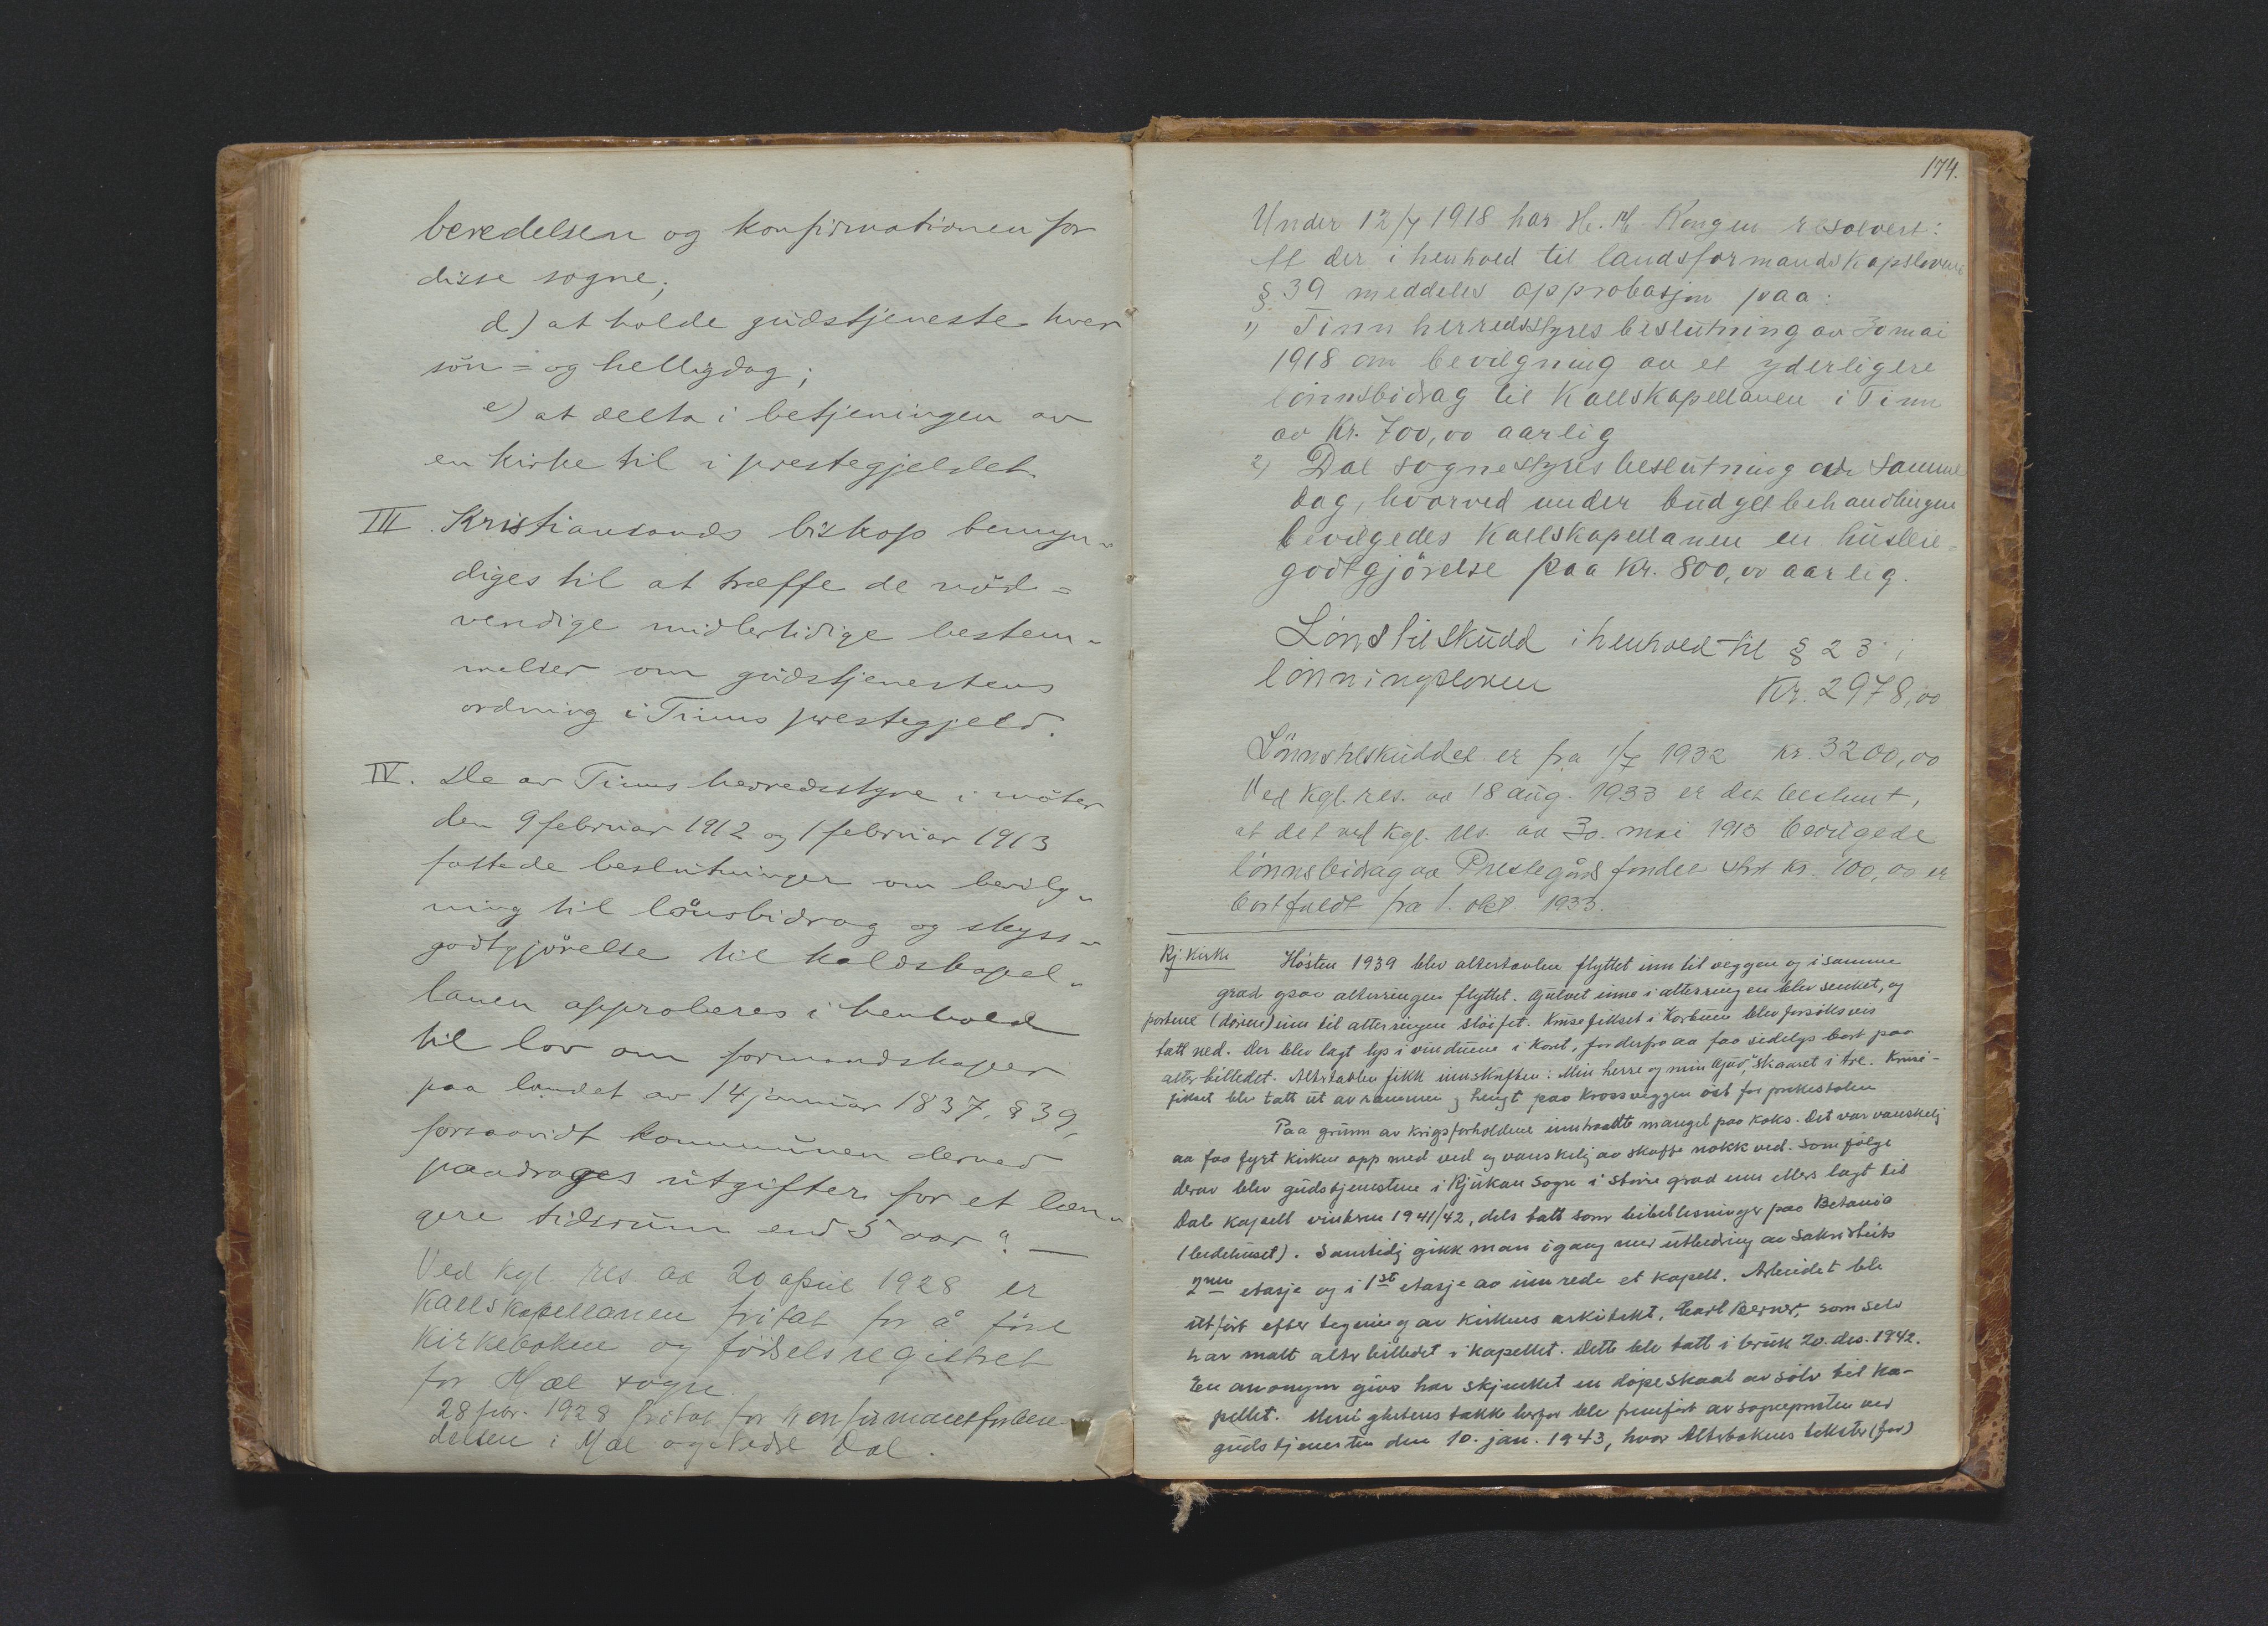 beredelsen og konfirmationen for
disse sogne;
d) at holde gudstjeneste hver
søn= og helligdag;
e) at delta i betjeningen av
en kirke til i prestegjeldet.
III. Kristiansands biskop bemyn-
diges til at træffe de nød=
vendige midlertidige bestem-
melser om gudstjenestens
ordning i Tinns prestegjeld.
IV. De av Tinns herredsstyre i møter
den 9 februar 1912 og 1 februar 1913
fattede beslutninger om bevilg-
ning til lønsbidrag og skyss-
godtgjørelse til kaldskapel-
lanen approberes i henhold
til lov om formandskaper
paa landet av 14 januar 1837, § 39,
forsaavidt kommunen derved
paadrages utgifter for et læn-
gere tidsrum end 5 aar". —
Ved kgl. res av 20 april 1928 er
Kallskapellanen fritat for å føre
Kirkebøkene og fødselsregistret
for Mæl sogn.
28 febr. 1928 fritat for konfirmantforbere-
delsen i Mæl og Dal.
174.
Under 12/7 1918 har H. M. Kongen resolvert:
At der i henhold til landsformandskapslovens
§ 39 meddeles approbasjon paa:
1) Tinn herredsstyres beslutning av 30 mai
1918 om bevilgning av et yderligere
lønnsbidrag til Kallskapellanen i Tinn
av Kr. 700,00 aarlig
2) Dal sognestyres beslutning av samme
dag, hvorved under budgetbehandlingen
bevilgedes Kallskapellanen en husleie-
godtgjørelse paa Kr. 800,00 aarlig.
Lønstilskudd i henhold til § 23 i
lønningsloven Kr. 2978,00
Lønnstilskuddet er fra 1/7 1932 kr. 3200,00
Ved kgl. res. av 18 aug. 1933 er det bestemt,
at det ved kgl. res. av 30. mai 1913 bevilgede
lønnsbidrag av Prestegårdsfondet stort kr. 100,00 er
bortfaldt fra 1. okt. 1933.
Rj. Kirke Høsten 1939 blev altertavlen flyttet inn til veggen og i samme
grad ogsaa alterringen flyttet. Gulvet inne i alterringen blev senket, og
portene (dørene) inn til alterringen sløifet. Krusefikset i Korbuen blev forsøksvis
tatt ned. Der blev lagt lys i vinduene i Koret, for derfra aa faa sidelys bort paa
alterbilledet. Altertavlen fikk innskriften: "Min herre og min Gud", skaaret i tre. Kruse-
fikset blev tatt ut av rammen og hengt paa Krossveggen øst for prekestolen
Paa grunn av krigsforholdene inntraadte mangel paa koks. Det var vanskelig
aa faa fyrt kirken opp med ved og vanskelig aa skaffe nokk ved. Som følge
derav blev gudstjenestene i Rjukan Sogn i større grad enn ellers lagt til
Dal kapell vinteren 1941/42, dels tatt som bibellesninger paa Betania
(bedehuset). Samtidig gikk man igang med utbedring av Sakristiets
2nen etasje og i 1st etasje aa innrede et kapell. Arbeidet ble
utført efter tegning av Kirkens arkitekt, Carl Berner, som selv
har malt alterbilledet i kapellet. Dette ble tatt i bruk 20. des. 1942.
En anonym giver har skjenket en døpeskaal av sølv til ka-
pellet. Menighetens takk herfor ble fremført av sognepresten ved
gudstjenesten den 10. jan. 1943, hvor Alterbokens tekster (for)